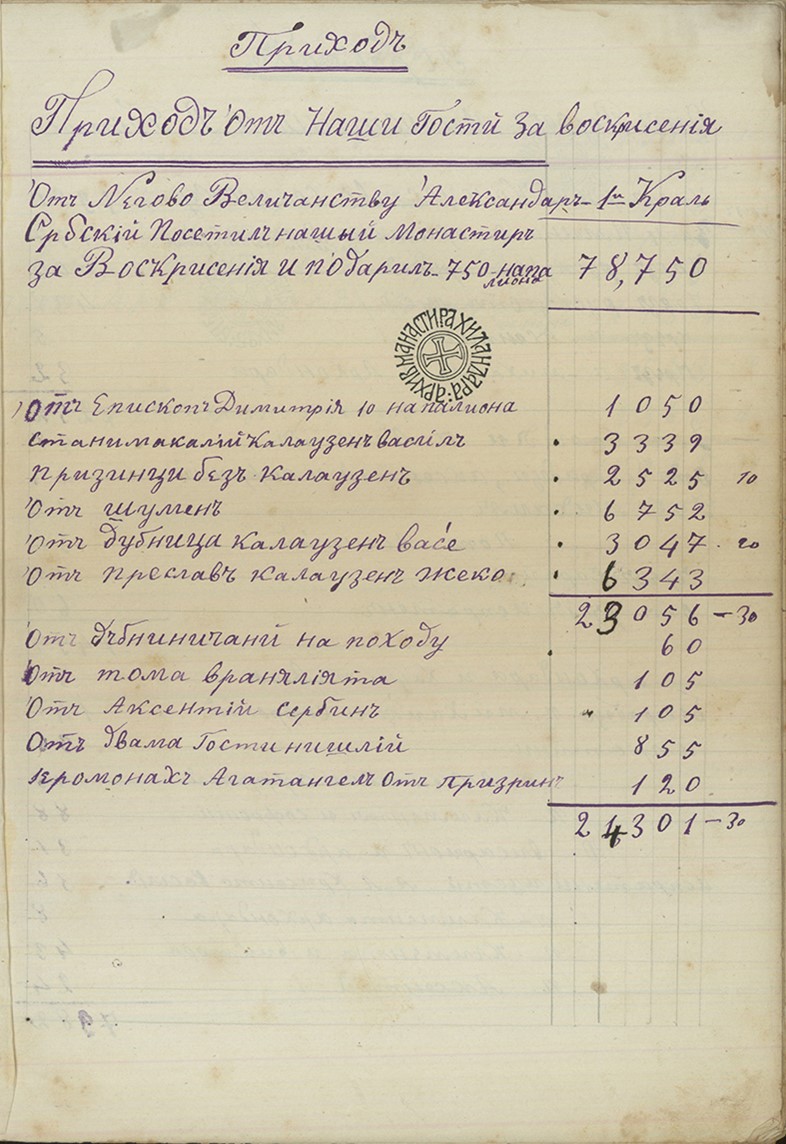 Приходъ
Приходъ Отъ Наши Гостй За Воскрисенія
Отъ Негово Величанству Александаръ 1ᵘ Краль
Србскій Посетилъ нашый Монастиръ
за Воскрисенія и подарилъ 750 напалиона 78,750
АРХИВ МАНАСТИРА ХИЛАНДАРА
Отъ Епископъ Димитрія 10 напалиона 1050
Станимакалій Калаузенъ Василъ 3339
Призинци безъ Калаузенъ 2525 10
Отъ Шуменъ 6752
Отъ Дубница Калаузенъ Васе 3047 20
Отъ Преславъ Калаузенъ Жеко 6343
23056–30
Отъ на походу 60
Отъ тома 105
Отъ Аксентій Сербинъ 105
Отъ Двама Гости нишлій 855
Іеромонахъ Агатангелъ Отъ Призринъ 120
24301–30